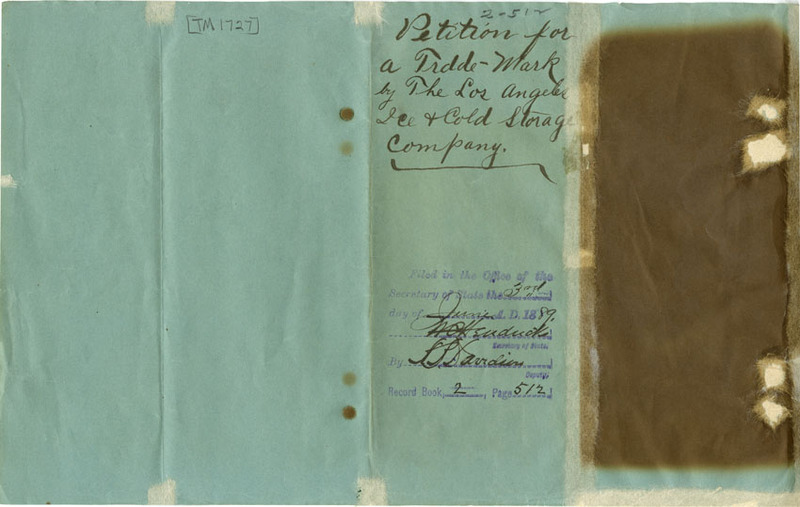 [TM 1727]
2-512
Petition for
a Trade-Mark
by The Los Angeles
Ice & Cold Storage
Company.
Filed in the Office of the
Secretary of State the 3rd
day of A. D. 1889.
Secretary of State.
By
Deputy.
Record Book, 2, Page 512